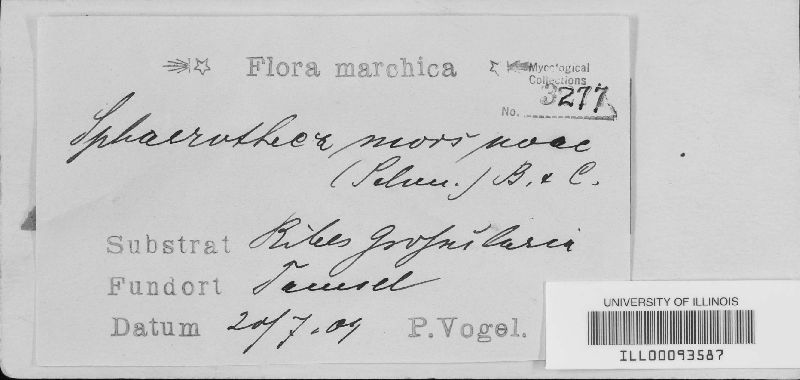 Flora marchica
Mycological
Collections
No. 3277
Sphaerotheca mors uvae
(Schw.) B. & C.
Substrat Ribes Grossularia
Fundort Tamsel
Datum 20/7.09 P. Vogel.
UNIVERSITY OF ILLINOIS
ILL00093587